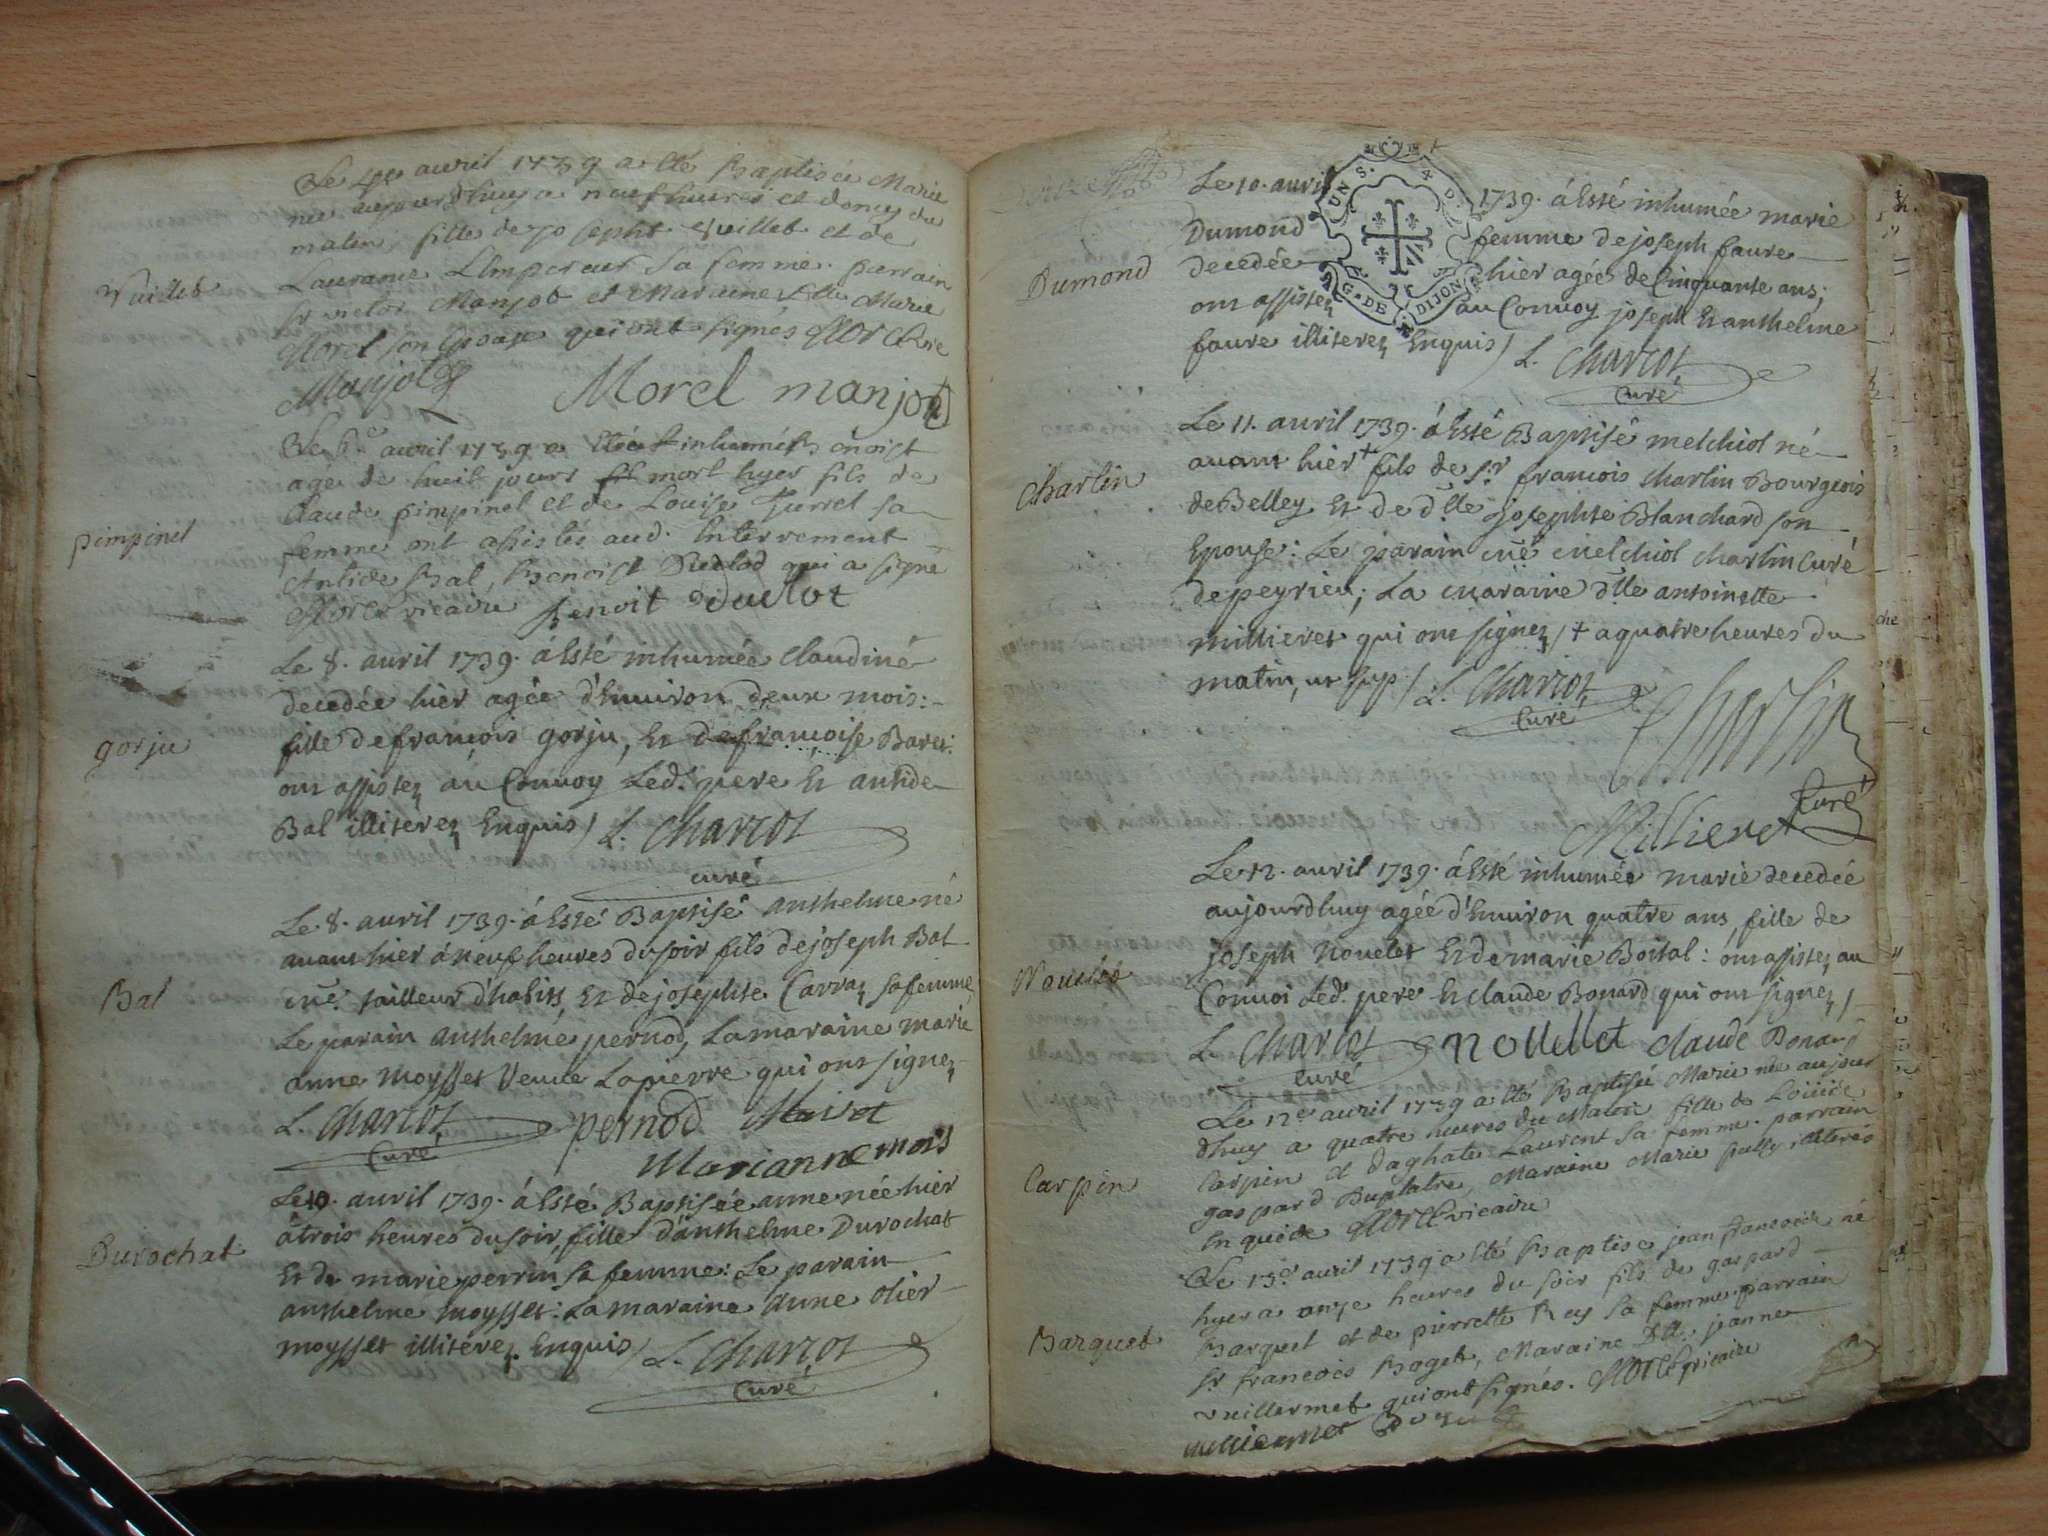 Le 4e avril 1739 a eté Baptisée Marie
née aujourdhuy a neuf heures et demy du
matin, fille de joseph Vuillet et de
Vuillet
Laurance Lempereur sa femme. parrain
sr victor Manjot et Maraine dlle Marie
Morel son Epouse qui ont signés Morel vre
Manjot Morel manjot
Le 6e avril 1739 a eté inhumé Benoist
age de huit jours mort hyer fils de
Claude pimpinel et de Louise Turrel sa
pimpinel
femme ont assistés aud. Enterrement
Antide Bal, Benoist Duclod qui a signé
Morel vicaire benoit Duclot
Le 8. avril 1739. á Esté inhumée Claudine
decedée hier agée d'Environ deux mois:
gorju
fille de francois gorju, Et de francoise Baret:
ont assistez au Convoy Led. pere Et antide
Bal illiterez Enquis / L. Charcot
curé
Le 8. avril 1739. á Esté Baptisé anthelme né
avant hier á neuf heures du soir fils de joseph Bal
Bal
me. tailleur d'habits, Et de josephte Carraz sa femme,
Le parain anthelme pernod, La maraine marie
anne moysset Veuve Lapierre qui ont signez
L. Charcot pernod
Curé
Marianne mois
Le 10. avril 1739. á Esté Baptisée anne née hier
á trois heures du soir, fille d'anthelme Durochat
Durochat
Et de marie perrin sa femme: Le parain
anthelme moysset: La maraine anne olier
moysset illiterez Enquis / L. Charcot
Curé
UN S. X D.
G. DE DIJON
Le 10. avril 1739. á Esté inhumée marie
Dumond femme de joseph faure
Dumond
decedée hier agée de Cinquante ans;
ont assistez au Convoy joseph Et anthelme
faure illiterez Enquis / L. Charcot
Curé
Le 11. avril 1739. á Esté Baptisé melchiol né
avant hier + fils de sr. francois Charlin Bourgeois
Charlin
de Belley Et de dlle josephte Blanchard son
Epouse: Le parain me melchiol Charlin Curé
de peyrieu; La maraine dlle antoinette
millieret qui ont signez / + a quatre heures du
matin, ut sup / L. Charcot
Curé
Charlin
Curé
Millieret
Le 12. avril 1739. á Esté inhumée marie decedée
aujourdhuy agée d'Environ quatre ans, fille de
joseph Nouelet Et de marie Boital: ont assistez au
Nouelet
Convoi Led. pere Et Claude Bonard qui ont signez /
L. Charcot nouellet claude Bonard
Curé
Le 12e avril 1739 a eté Baptisée Marie née aujour
dhuy a quatre heures du Matin fille de Louis
Carpin
Carpin et d'aghate Laurent sa femme. parrain
gaspard Duplatre, Maraine Marie pully illiterés
Enquis Morel vicaire
Le 13e avril 1739 a eté Baptise jean francois né
hyer a onze heures du soir fils de gaspard
Barquet
Barquet et de pierrette Rey sa femme parrain
sr francois Boget, Maraine dlle jeanne
vuillermet qui ont signés. Morel vicaire